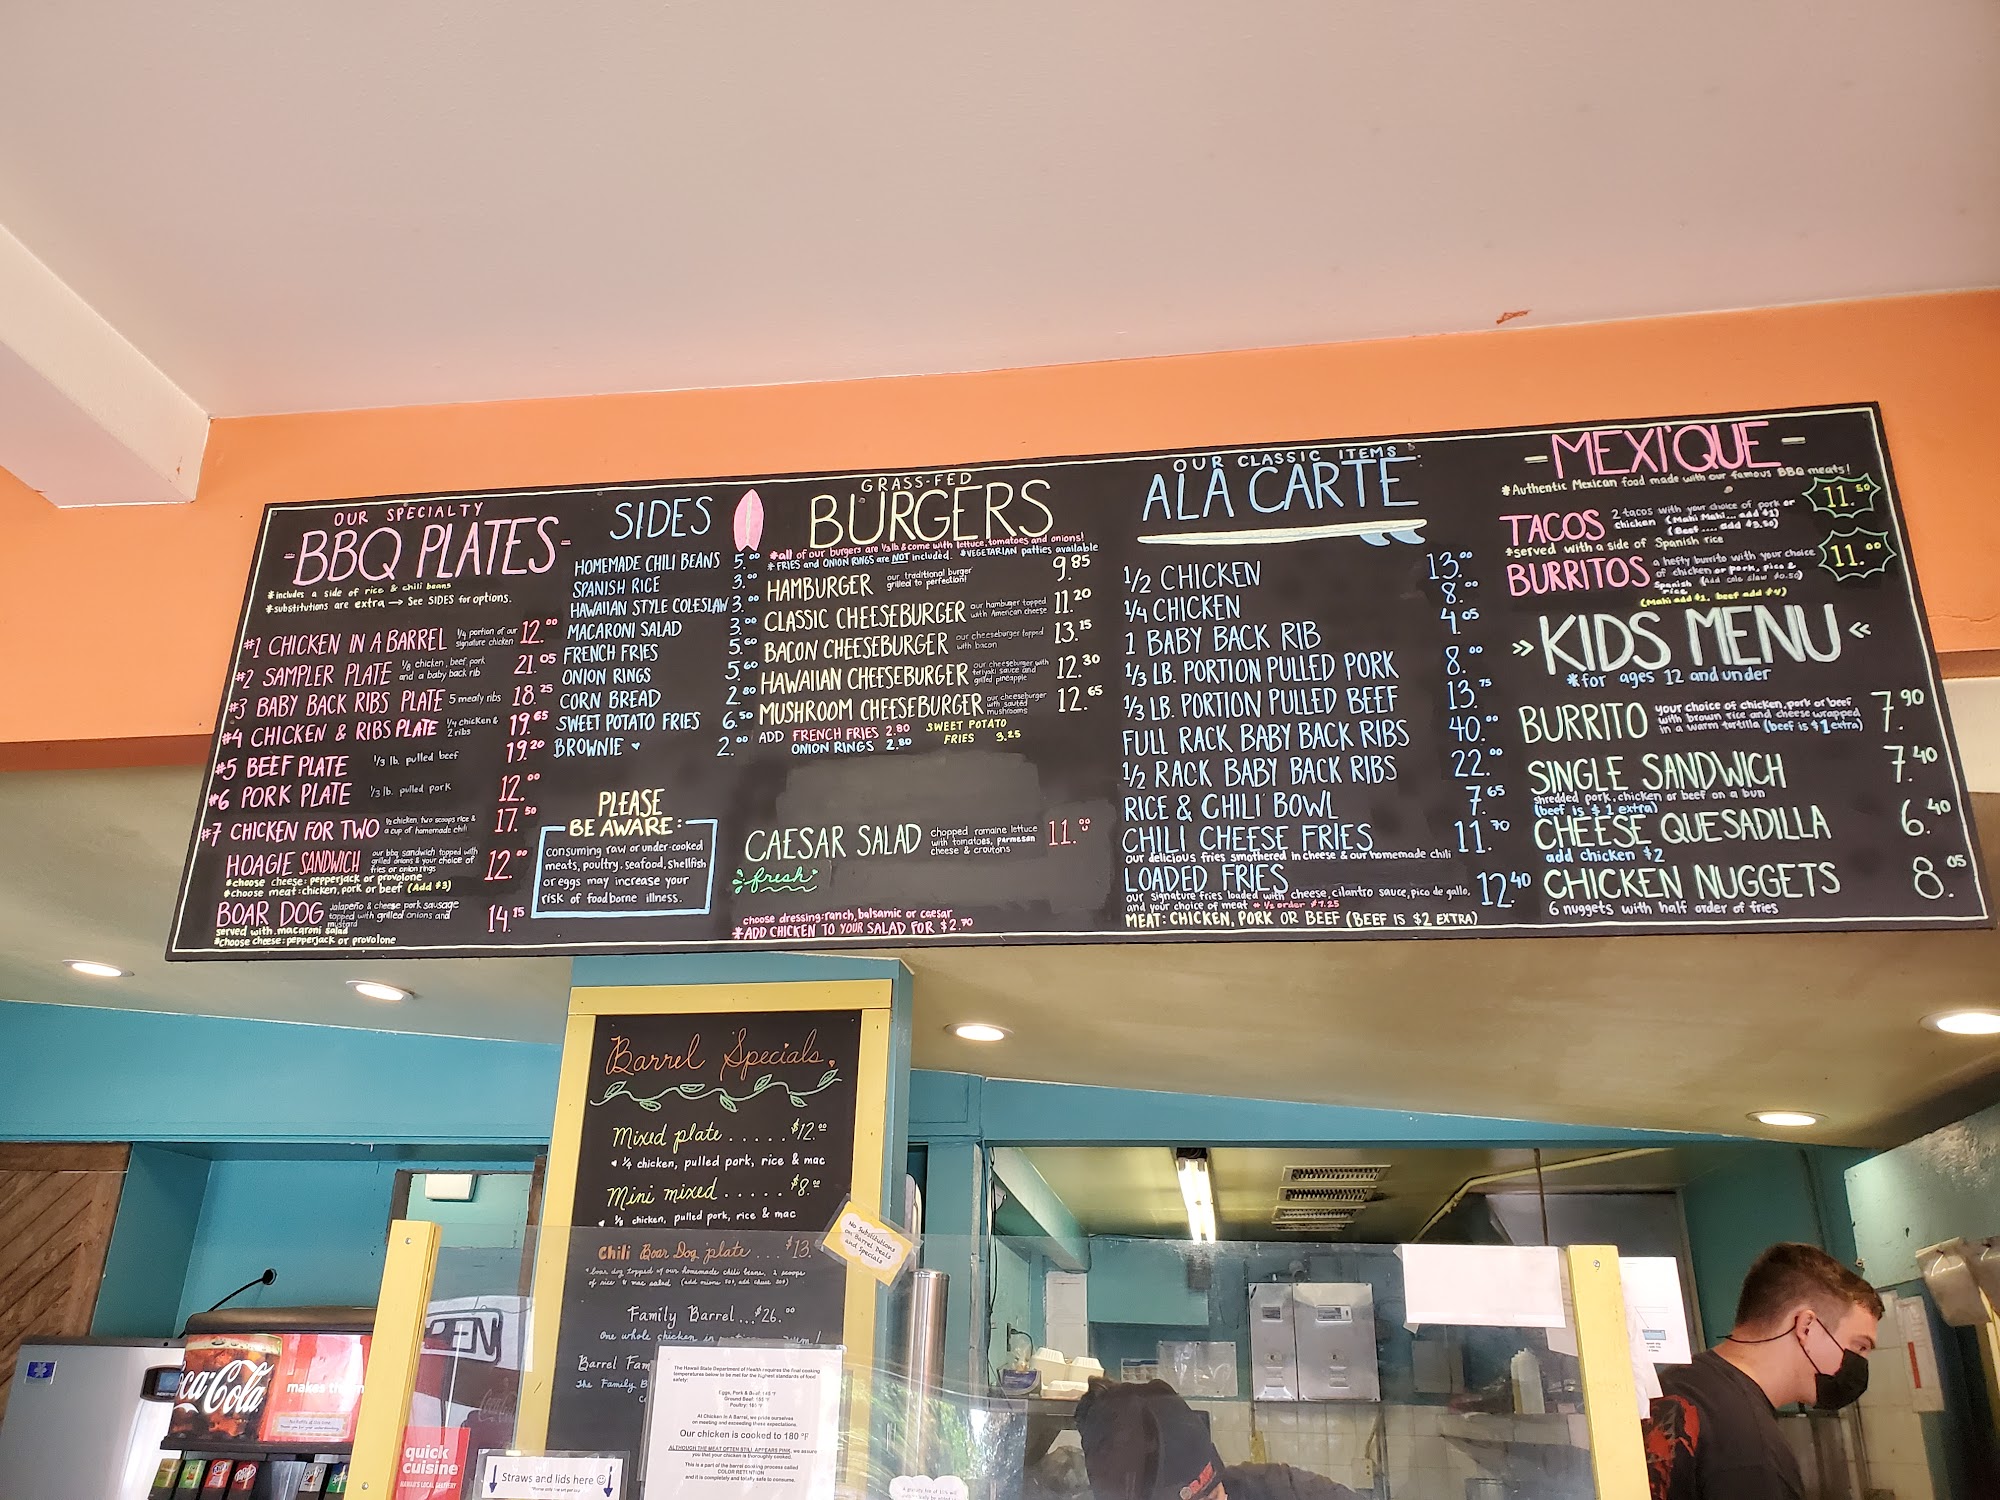 OUR SPECIALTY
-BBQ PLATES-
*includes a side of rice & chili beans
*substitutions are extra → See SIDES for options.
#1 CHICKEN IN A BARREL 1/4 portion of our signature chicken 12.00
#2 SAMPLER PLATE 1/8 chicken, beef, pork and a baby back rib 21.05
#3 BABY BACK RIBS PLATE 5 meaty ribs 18.25
#4 CHICKEN & RIBS PLATE 1/4 chicken & 2 ribs 19.65
#5 BEEF PLATE 1/3 lb. pulled beef 19.20
#6 PORK PLATE 1/3 lb. pulled pork 12.00
#7 CHICKEN FOR TWO 1/2 chicken, two scoops rice & a cup of homemade chili 17.50
HOAGIE SANDWICH our bbq sandwich topped with grilled onions & your choice of fries or onion rings 12.00
*choose cheese: pepperjack or provolone
*choose meat: chicken, pork or beef (Add $3)
BOAR DOG Jalapeño & cheese pork sausage topped with grilled onions and mustard 14.15
served with macaroni salad
*choose cheese: pepperjack or provolone
SIDES
HOMEMADE CHILI BEANS 5.00
SPANISH RICE 3.00
HAWAIIAN STYLE COLESLAW 3.00
MACARONI SALAD 3.00
FRENCH FRIES 5.60
ONION RINGS 5.60
CORN BREAD 2.80
SWEET POTATO FRIES 6.50
BROWNIE ♥ 2.00
PLEASE
BE AWARE:
consuming raw or under-cooked
meats, poultry, seafood, shellfish
or eggs may increase your
risk of foodborne illness.
GRASS-FED
BURGERS
*all of our burgers are 1/3 lb & come with lettuce, tomatoes and onions!
*FRIES and ONION RINGS are NOT included. *VEGETARIAN patties available
HAMBURGER our traditional burger grilled to perfection! 9.85
CLASSIC CHEESEBURGER our hamburger topped with American cheese 11.20
BACON CHEESEBURGER our cheeseburger topped with bacon 13.15
HAWAIIAN CHEESEBURGER our cheeseburger with teriyaki sauce and grilled pineapple 12.30
MUSHROOM CHEESEBURGER our cheeseburger with sauted mushrooms 12.65
ADD FRENCH FRIES 2.80 SWEET POTATO
ONION RINGS 2.80 FRIES 3.25
CAESAR SALAD chopped romaine lettuce with tomatoes, parmesan cheese & croutons 11.00
fresh
choose dressing: ranch, balsamic or caesar
*ADD CHICKEN TO YOUR SALAD FOR $2.70
OUR CLASSIC ITEMS
ALA CARTE
1/2 CHICKEN 13.00
1/4 CHICKEN 8.00
1 BABY BACK RIB 4.05
1/3 LB. PORTION PULLED PORK 8.00
1/3 LB. PORTION PULLED BEEF 13.75
FULL RACK BABY BACK RIBS 40.00
1/2 RACK BABY BACK RIBS 22.00
RICE & CHILI BOWL 7.65
CHILI CHEESE FRIES 11.70
our delicious fries smothered in cheese & our homemade chili
LOADED FRIES 12.40
our signature fries loaded with cheese, cilantro sauce, pico de gallo,
and your choice of meat * 1/2 order $7.25
MEAT: CHICKEN, PORK OR BEEF (BEEF IS $2 EXTRA)
-MEXI'QUE-
*Authentic Mexican food made with our famous BBQ meats!
TACOS 2 tacos with your choice of pork or chicken (Mahi Mahi... add $1) (Beef .... add $3.50) 11.50
*served with a side of Spanish rice
BURRITOS a hefty burrito with your choice of chicken or pork, rice & Spanish rice (Add cole slaw $0.50) 11.00
(Mahi add $1, beef add $4)
» KIDS MENU «
*for ages 12 and under
BURRITO your choice of chicken, pork or beef with brown rice and cheese wrapped in a warm tortilla (beef is $1 extra) 7.90
SINGLE SANDWICH 7.40
shredded pork, chicken or beef on a bun
(beef is $1 extra)
CHEESE QUESADILLA 6.40
add chicken $2
CHICKEN NUGGETS 8.05
6 nuggets with half order of fries
Barrel Specials
Mixed plate ..... $12.00
1/4 chicken, pulled pork, rice & mac
Mini mixed ..... $8.00
1/8 chicken, pulled pork, rice & mac
Chili Boar Dog plate ... $13.
*boar dog topped of our homemade chili beans, 2 scoops
of rice & mac salad
Family Barrel... $26.00
One whole chicken
Barrel Fam
The Family B
No Substitutions
on Barrel Deals
and Specials
The Hawaii State Department of Health requires the final cooking
temperatures below to be met for the highest standards of food
safety:
Eggs, Pork & Beef: 145 °F
Ground Beef: 155 °F
Poultry: 165 °F
At Chicken In A Barrel, we pride ourselves
on meeting and exceeding these expectations.
Our chicken is cooked to 180 °F
ALTHOUGH THE MEAT OFTEN STILL APPEARS PINK, we assure
you that your chicken is thoroughly cooked.
This is a part of the barrel cooking process called
COLOR RETENTION
and it is completely and totally safe to consume.
Coca-Cola
makes
quick
cuisine
Straws and lids here ☺